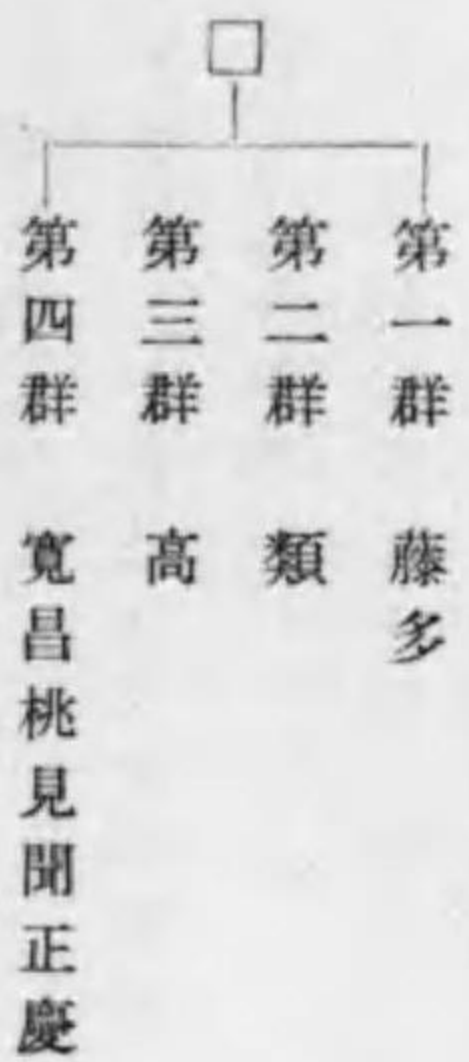 第一群　藤多
第二群　類
第三群　高
第四群　寛昌桃見聞正慶